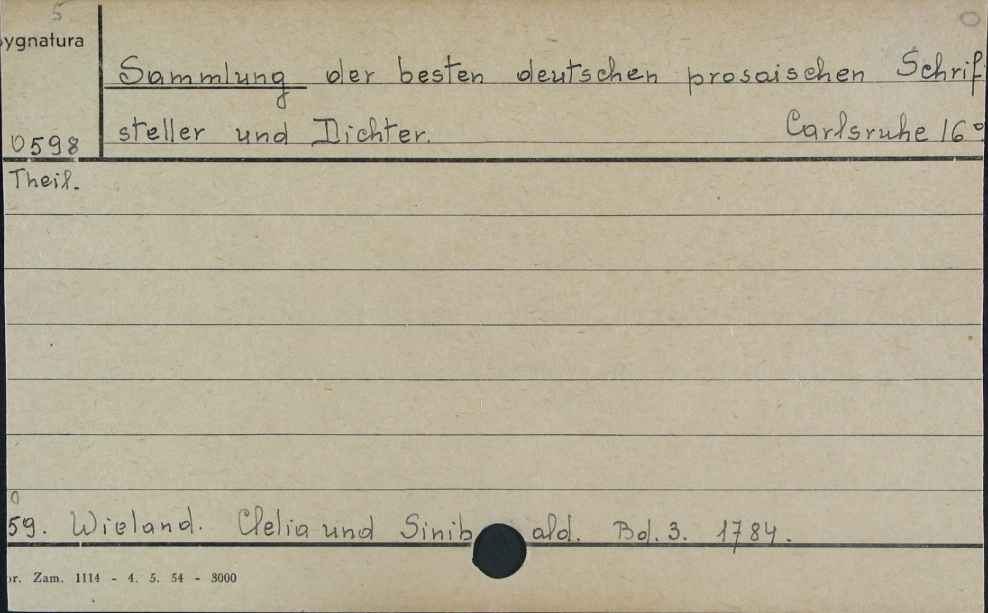 5
ygnatura
Sammlung der besten deutschen prosaischen Schrif
0598 steller und Dichter. Carlsruhe 16°
Theil.
0
59. Wieland. Clelia und Sinibald. Bd. 3. 1784.
r. Zam. 1114 - 4. 5. 54 - 3000